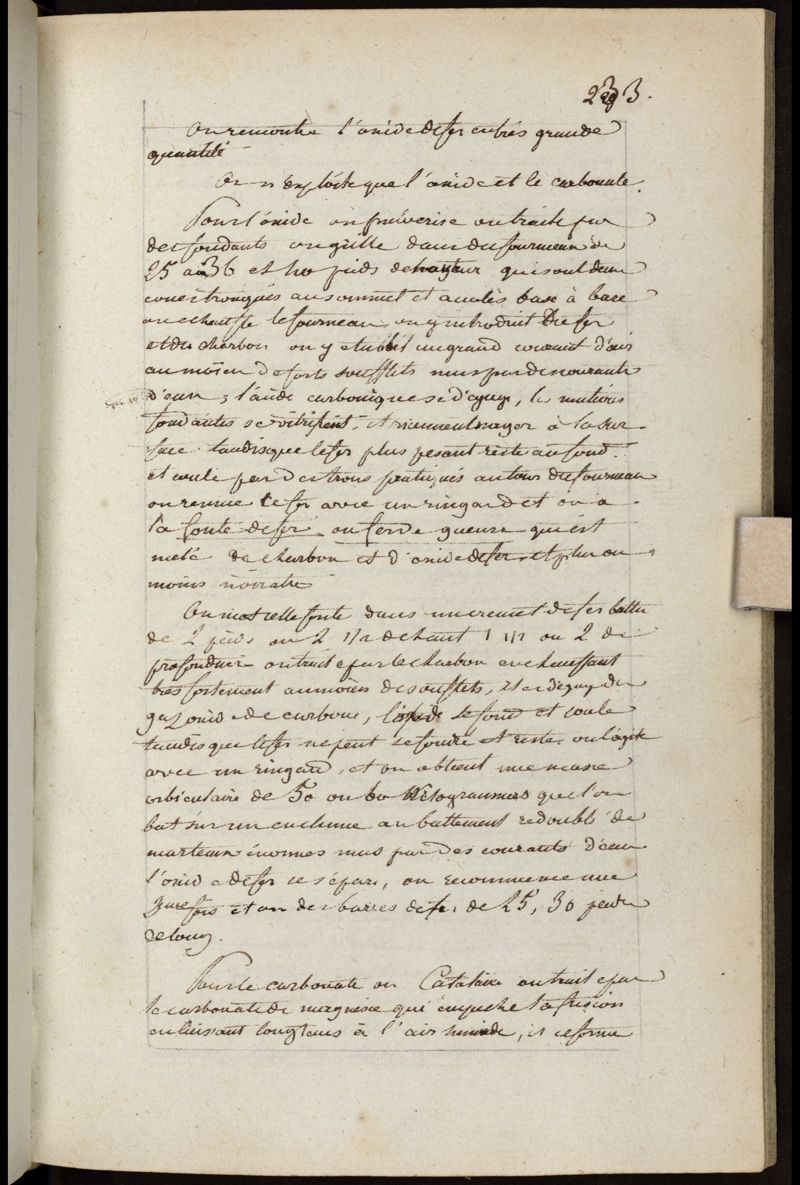 233.
On rencontre l'oxide de fer en très grande
quantité
On n'exploite que l'oxide et le carbonate.
Pour l'oxide on pulverise on traite par
des fondants on grille dans des fourneaux de
25 a 36 et 40 pieds de hauteur qui sont deux
cones tronqués au sommet et accolés base à base
on echauffe le fourneau, on y introduit du fer
et du charbon on y etablit un grand courant d'air
au moien de forts soufflets mus par des courants
d'eau, l'acide carbonique se dégage, les matieres
fondantes se vitrifient, et viennent nager à la sur-
face tandis que le fer plus pesant reste au fond
et coule par des trous pratiqués autour du fourneau
on remue le fer avec un ringard et on a
la fonte de fer ou fer de gueuse qui est
melé de charbon et d'oxide de fer, et plus ou
moins noiratre
On met cette fonte dans un creuset de fer battu
de 2 pieds ou 2 1/2 de haut 1 1/2 ou 2 de
profondeur on traite par le charbon en chauffant
tres fortement au moien de soufflets, il se dégage du
gaz oxide de carbone, l'oxide se fond et coule
tandis que le fer ne peut se fondre et reste, on l'agite
avec un ringard, et on obtient une masse
orbiculaire de 50 ou 60 Kilogrammes que l'on
bat sur un enclume au battement redoublé de
marteaux énormes mus par des courants d'eau
l'oxide de fer se sépare, on recommence une
3me fois et on a des barres de fer de 25, 30 pieds
de long.
Pour le carbonate on traite par
le carbonate de magnesie qui empeche la fusion
en laissant longtems à l'air humide, il se forme